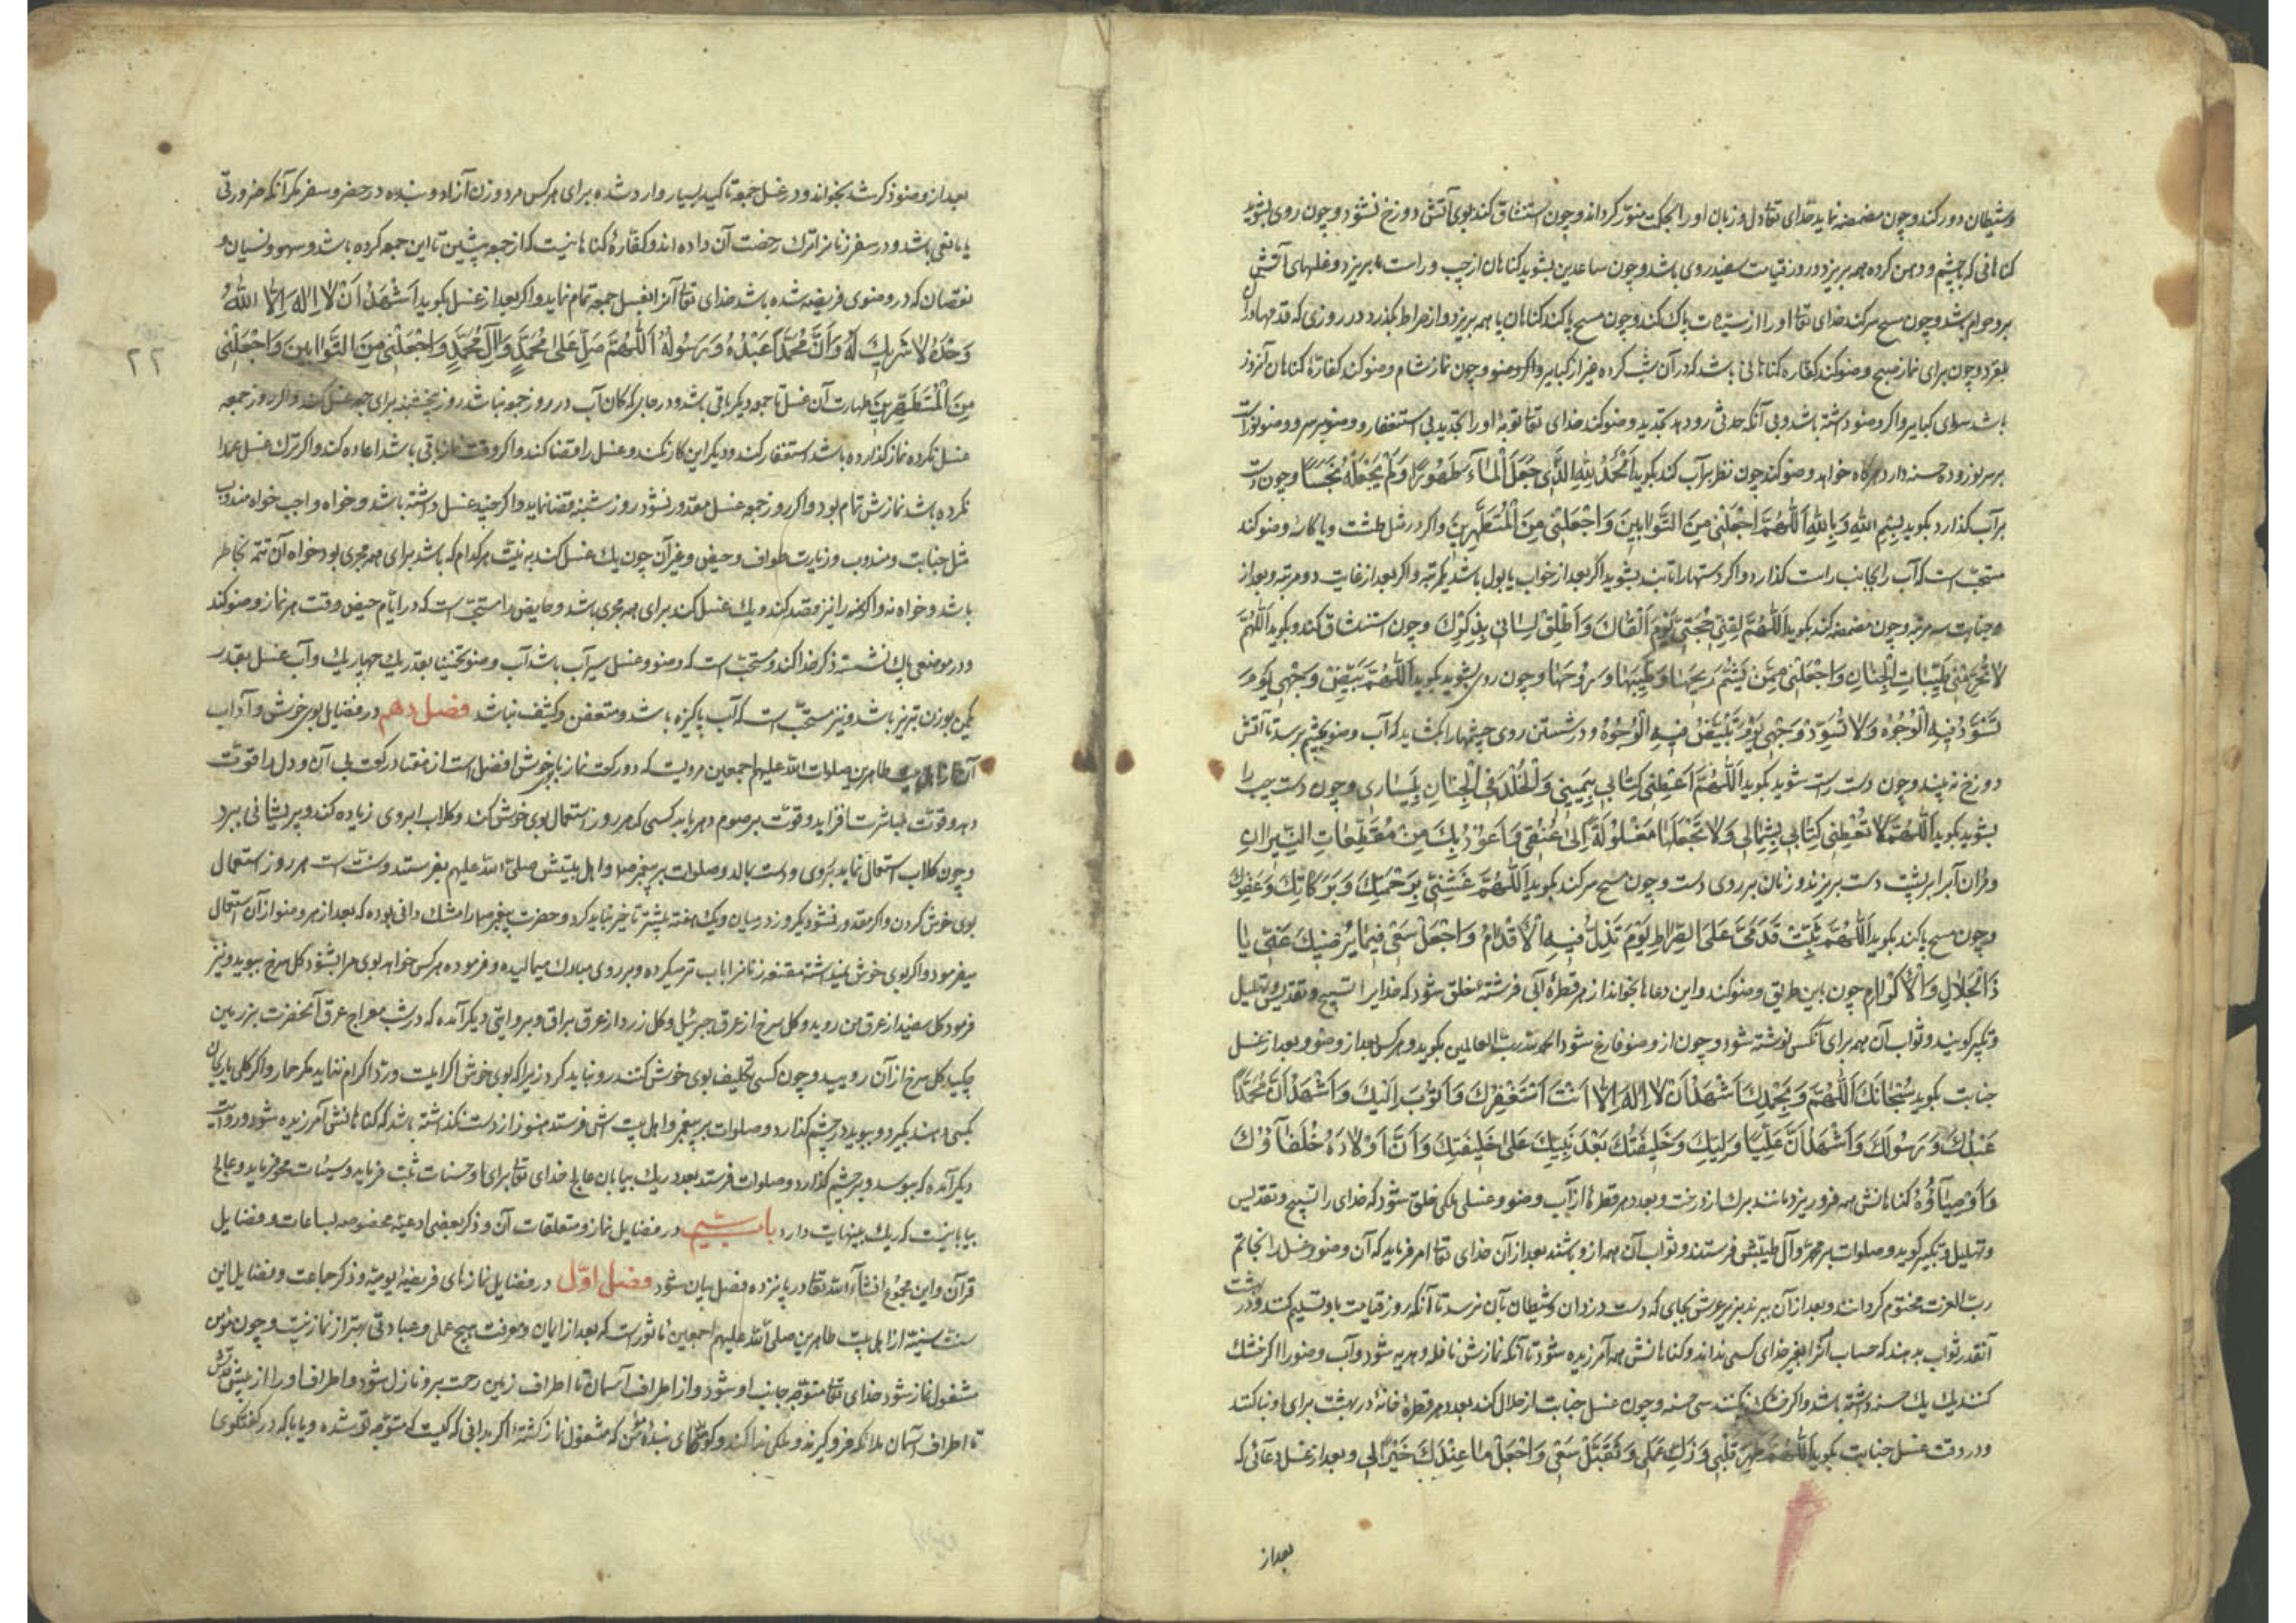 و شیطان دور کند و چون مضمضه نماید خدای تعا دل و زبان او را بحکمت منوّر کرداند و چون استنشاق کند بوی آتش دوزخ نشنود و چون روی بشوید
کناهانی که بچشم و دهن کرده همه بریزد و روز قیامت سفید روی باشد و چون ساعدین بشوید کناهان از چپ و راست بریزد و غلهای آتشین
برو حرام باشد و چون مسح سر کند خدای تعا او را از سیّئات پاک کند و چون مسح پا کند کناهان پا همه بریزد و از صراط بکذرد در روزی که قدمها دران
بلغزد و چون برای نماز صبح وضو کند کفاره کناهانی باشد که در آن شب کرده غیر از کبایر و اکر وضو و چون نماز شام وضو کند کفارهٔ کناهان آنروز
باشد سوای کبایر و اکر وضو داشته باشد و بی آنکه حدثی رو دهد تجدید وضو کند خدای تعا توبهٔ او را تجدید بی استغفار و وضو بر سر وضو نورست
بر سر نور و ده حسنه دارد هرکاه خواهد وضو کند چون نظر بر آب کند بکوید اَلْحَمْدُ لِلّٰهِ الَّذِی جَعَلَ الْمَآءَ طَهُورًا وَلَمْ یَجْعَلْهُ نَجَسًا و چون دست
بر آب کذارد بکوید بِسْمِ اللّٰهِ وَبِاللّٰهِ اَللّٰهُمَّ اجْعَلْنِی مِنَ التَّوَّابِینَ وَاجْعَلْنِی مِنَ الْمُتَطَهِّرِینَ و اکر در مثل طشت و یا کاسه وضو کند
مستحبّ است که آب را بجانب راست کذارد و اکر دستها را تا بند بشوید اکر بعد از خواب یا بول باشد یکمرتبه و اکر بعد از غایت دو مرتبه و بعد از
جنابت سه مرتبه و چون مضمضه کند بکوید اَللّٰهُمَّ لَقِّنِی حُجَّتِی یَوْمَ اَلْقَاكَ وَاَطْلِقْ لِسَانِی بِذِکْرِكَ و چون استنشاق کند و بکوید اَللّٰهُمَّ
لَا تُحَرِّمْنِی طَیِّبَاتِ الْجِنَانِ وَاجْعَلْنِی مِمَّنْ یَشُمُّ رِیحَهَا وَطِیبَهَا وَرَوْحَهَا و چون روی بشوید بکوید اَللّٰهُمَّ بَیِّضْ وَجْهِی یَوْمَ
تَسْوَدُّ فِیهِ الْوُجُوهُ وَلَا تُسَوِّدْ وَجْهِی یَوْمَ تَبْیَضُّ فِیهِ الْوُجُوهُ و در شستن روی چشمها را بکشاید که آب وضو بچشم برسد تا آتش
دوزخ نه بیند و چون دست راست شوید بکوید اَللّٰهُمَّ اَعْطِنِی کِتَابِی بِیَمِینِی وَالْخُلْدَ فِی الْجِنَانِ بِیَسَارِی و چون دست چپ را
بشوید بکوید اَللّٰهُمَّ لَا تُعْطِنِی کِتَابِی بِشِمَالِی وَلَا تَجْعَلْهَا مَغْلُولَةً اِلیٰ عُنُقِی وَاَعُوذُ بِكَ مِنْ مُقَطِّعَاتِ النِّیرَانِ
و مردان آب را بر پشت دست بریزند و زنان بر روی دست و چون مسح سر کند بکوید اَللّٰهُمَّ غَشِّنِی بِرَحْمَتِكَ وَبَرَکَاتِكَ وَعَفْوِكَ
و چون مسح پا کند بکوید اَللّٰهُمَّ ثَبِّتْ قَدَمَیَّ عَلَی الصِّرَاطِ یَوْمَ تَزِلُّ فِیهِ الْاَقْدَامُ وَاجْعَلْ سَعْیِی فِیمَا یُرْضِیكَ عَنِّی یَا
ذَا الْجَلَالِ وَالْاِکْرَامِ چون باین طریق وضو کند و این دعاها بخواند از هر قطرهٔ آبی فرشتهٔ خلق شود که خدایرا تسبیح و تقدیس و تهلیل
و تکبیر کویند و ثواب آن همه برای آنکس نوشته شود و چون از وضو فارغ شود الحمد لله ربّ العالمین بکوید و هرکس بعد از وضو و بعد از غسل
جنابت بکوید سُبْحَانَكَ اَللّٰهُمَّ وَبِحَمْدِكَ اَشْهَدُ اَنْ لَا اِلٰهَ اِلَّا اَنْتَ اَسْتَغْفِرُكَ وَاَتُوبُ اِلَیْكَ وَاَشْهَدُ اَنَّ مُحَمَّدًا
عَبْدُكَ وَرَسُولُكَ وَاَشْهَدُ اَنَّ عَلِیًّا وَلِیُّكَ وَخَلِیفَتُكَ بَعْدَ نَبِیِّكَ عَلیٰ خَلِیقَتِكَ وَاَنَّ اَوْلَادَهُ خُلَفَاؤُكَ
وَاَوْصِیَاؤُهُ کناهانش همه فرو ریزد مانند برك از درخت و بعدد هر قطرهٔ از آب وضو و غسلی ملکی خلق شود که خدای را تسبیح و تقدیس
و تهلیل و تکبیر کوید و صلوات بر محمّد و آل طیبش فرستند و ثواب آن همه ازو باشد بعد از آن خدای تعا امر فرماید که آن وضو و غسل را بخاتم
ربّ العزت مختوم کردانند و بعد از آن ببرند بزیر عرش بجای که دست دزدان و شیطان بآن نرسد تا آنکه روز قیامت باو تسلیم کنند و در بهشت
آنقدر ثواب بدهند که حساب آنرا بغیر خدای کسی نداند و کناهانش همه آمرزیده شود تا آنکه نمازش نافله و هدیه شود و آب وضو را اکر خشك
کنند یك یك حسنه داشته باشد و اکر خشك نکند سی حسنه و چون غسل جنابت از حلال کند بعدد هر قطرهٔ خانهٔ در بهشت برای او بنا کنند
و در وقت غسل جنابت بکوید اَللّٰهُمَّ طَهِّرْ قَلْبِی وَزَكِّ عَمَلِی وَتَقَبَّلْ سَعْیِی وَاجْعَلْ مَا عِنْدَكَ خَیْرًا لِی و بعد از غسل دعائی که
بعد از
بعد از وضو ذکر شد بخواند و در غسل جمعه تاکید بسیار وارد شده برای هرکس مرد و زن آزاد و بنده در حضر و سفر مکر آنکه ضرورتی
یا مانعی باشد و در سفر زنانرا ترك رخصت آن داده اند و کفارهٔ کناهانیست که از جمعه پیشین تا این جمعه کرده باشد و سهو و نسیان و
نقصان که در وضوی فریضه شده باشد خدای تعا آنرا بغسل جمعه تمام نماید و اکر بعد از غسل بکوید اَشْهَدُ اَنْ لَا اِلٰهَ اِلَّا اللّٰهُ
وَحْدَهُ لَا شَرِیكَ لَهُ وَاَنَّ مُحَمَّدًا عَبْدُهُ وَرَسُولُهُ اَللّٰهُمَّ صَلِّ عَلیٰ مُحَمَّدٍ وَآلِ مُحَمَّدٍ وَاجْعَلْنِی مِنَ التَّوَّابِینَ وَاجْعَلْنِی
۲۲
مِنَ الْمُتَطَهِّرِینَ طهارت آن غسل تا جمعه دیکر باقی باشد و در جایی که کمان آب در روز جمعه نباشد روز پنجشنبه برای جمعه غسل کند و اکر روز جمعه
غسل نکرده نماز کذارده باشد استغفار کند و دیکر این کار نکند و غسل را قضا کند و اکر وقت نماز باقی باشد اعاده کند و اکر ترك غسل عمدا
نکرده باشد نمازش تمام بود و اکر روز جمعه غسل مقدور نشود روز شنبه قضا نماید و اکر چند غسل داشته باشد و خواه واجب خواه مندوب
مثل جنابت و مندوب و زیارت طواف و حیض و غیر آن چون یك غسل کند به نیّت هرکدام که باشد برای همه مجزی بود خواه آن تتمه بخاطر
باشد و خواه نه و اکر همه را نیز قصد کند و یك غسل کند برای همه مجزی باشد و حایض را مستحبّ است که در ایّام حیض وقت هر نماز وضو کند
و در موضعی پاك نشسته ذکر خدا کند و مستحبّ است که وضو و غسل سیر آب باشد آب وضو تخمینا بقدر یك چهاریك و آب غسل بقدر
یکمن بوزن تبریز باشد و نیز مستحبّ است که آب پاکیزه باشد و متعفن و کثیف نباشد فصل دهم در فضایل بوی خوش و آداب
آن از اهل بیت طاهرین صلوات الله علیهم اجمعین مرویست که دو رکعت نماز با بوی خوش افضل است از هفتاد رکعت بی آن و دل را قوّت
دهد و قوّت مباشرت افزاید و قوّت بر صوم دهد یابد کسی که هر روز استعمال بوی خوش کند و کلاب ابروی زیاده کند و پریشانی ببرد
و چون کلاب استعمال نماید بروی و دست بمالد و صلوات بر پیغمبر ص و اهل بیتش صلی الله علیهم بفرستد و سنّت است هر روز استعمال
بوی خوش کردن و اکر مقدور نشود یکروز در میان و یك هفته بیشتر تاخیر نباید کرد و حضرت پیغمبر ص را مشك دانی بوده که بعد از هر وضو از آن استعمال
میفرمود و اکر بوی خوش نمیداشته مقنعه زنانرا باب تر میکرده و بر روی مبارك میمالیده و فرموده هرکس خواهد بوی مرا بشنود کل سرخ ببوید و نیز
فرمود کل سفید از عرق من روید و کل سرخ از عرق جبرئیل و کل زرد از عرق براق و بروایتی دیکر آمده که در شب معراج عرق آنحضرت بزرمین
چکید کل سرخ از آن رویید و چون کسی تکلیف بوی خوش کنند رد نباید کرد زیرا که بوی خوش اکرامیست و رد اکرام ننماید مکر حمار و اکر کلی یا ریحان
بکسی دهند بکیرد و ببوید و بر چشم کذارد و صلوات بر پیغمبر و اهل بیت اش فرستد هنوز از دست نکذاشته باشد که کناهانش آمرزیده شود و روایت
دیکر آمده که ببوسد و بر چشم کذارد و صلوات فرستد بعدد ریك بیابان عالج خدای تعا برای او حسنات ثبت فرماید و سیئات محو فرماید و عالج
بیابانیست که ریك بینهایت دارد باب سیم در فضایل نماز و متعلقات آن و ذکر بعضی ادعیّه مخصوصه بساعات و فضایل
قرآن و این مجموع انشآء الله تعا در پانزده فصل بیان شود فصل اوّل در فضایل نمازهای فریضهٔ یومیّه و ذکر جماعت و فضایل این
سنّت سنیّه از اهل بیت طاهرین صلی الله علیهم اجمعین ماثور است که بعد از ایمان و معرفت هیچ عملی و عبادتی بهتر از نماز نیست و چون مؤمن
مشغول نماز شود خدای تعا متوجّه جانب او شود و از اطراف آسمان تا اطراف زمین رحمت برو نازل شود و اطراف او را از پیش قدمش
تا اطراف آسمان ملائکه فرو کیرند و ملکی ندا کند و کوید ای بندهٔ مؤمن که مشغول نماز کشتهٔ اکر بدانی که کیست که متوجّه تو شده و یا با که در کفتکوی